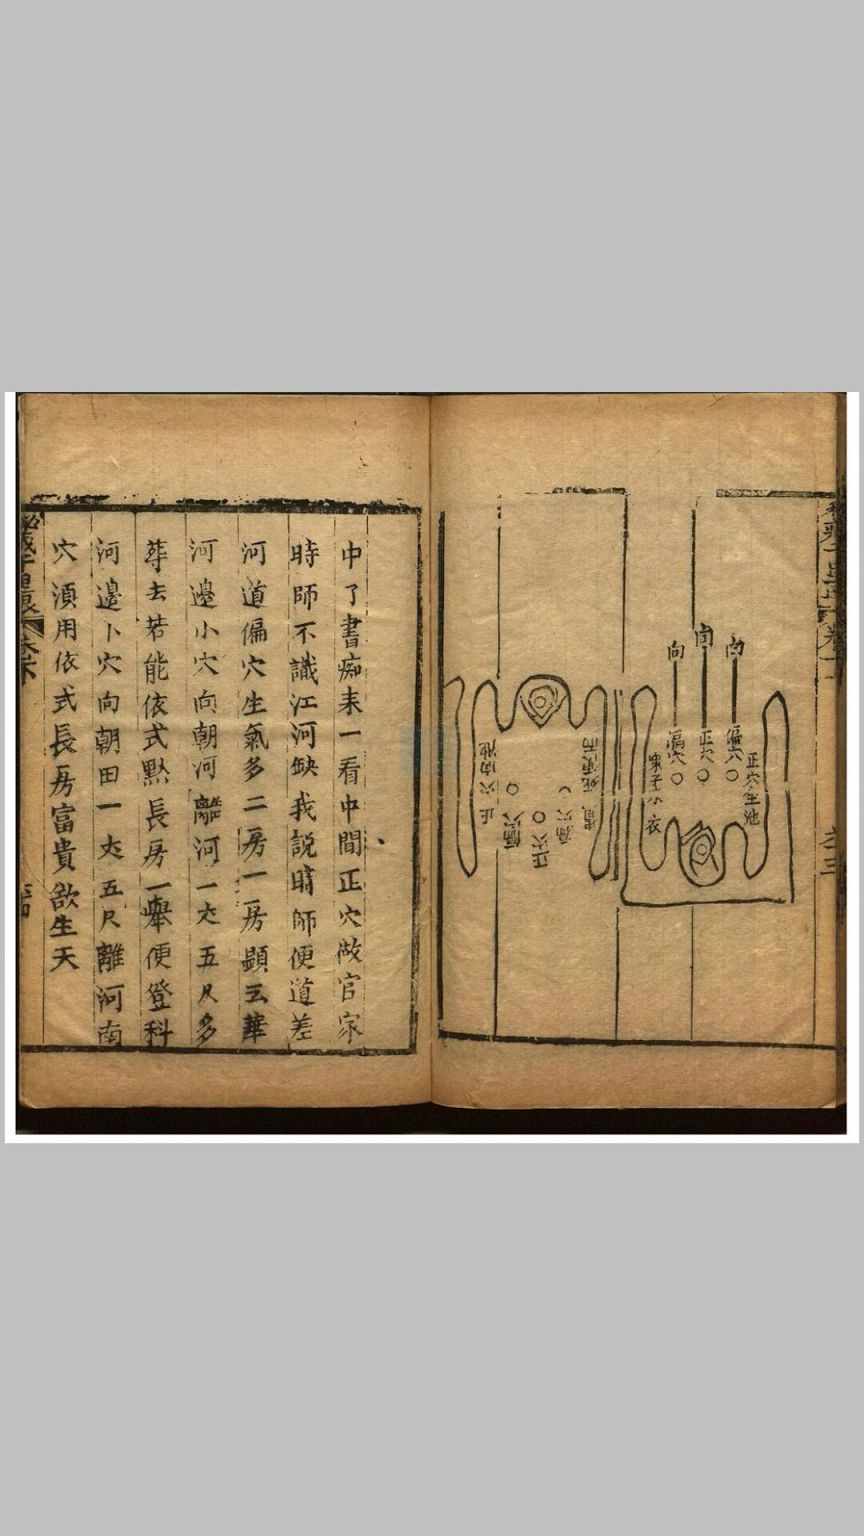 向
向
向
偏穴
正穴
偏穴
正穴
偏穴
正穴
中了書痴来一看中間正穴做官家
時師不識江河缺我說時師便道差
河道偏穴生氣多二房一房顕云華
河邊小穴向朝河離河一丈五尺多
葬去若能依式點長房一舉便登科
河邊卜穴向朝田一丈五尺離河南
穴須用依式長房富貴欲生天